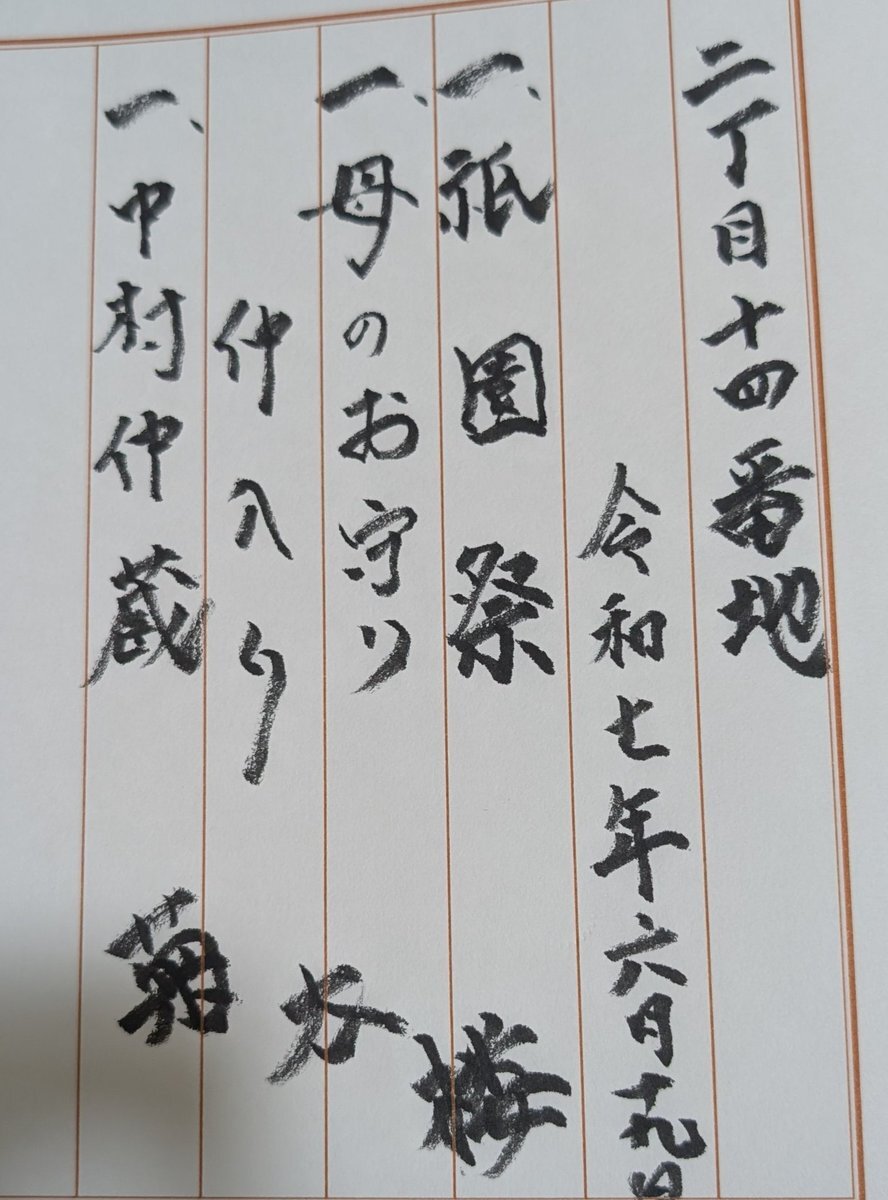 二丁目十四番地
令和七年六月十九日
一、祇園祭 梅
一、母のお守り
仲入り
一、中村仲蔵 菊